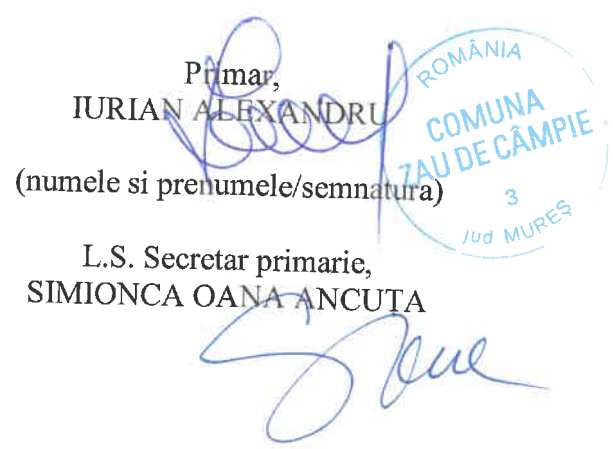 Primar,
IURIAN ALEXANDRU
(numele si prenumele/semnatura)
L.S. Secretar primarie,
SIMIONCA OANA ANCUTA
ROMÂNIA
COMUNA
ZAU DE CÂMPIE
3
jud MUREȘ